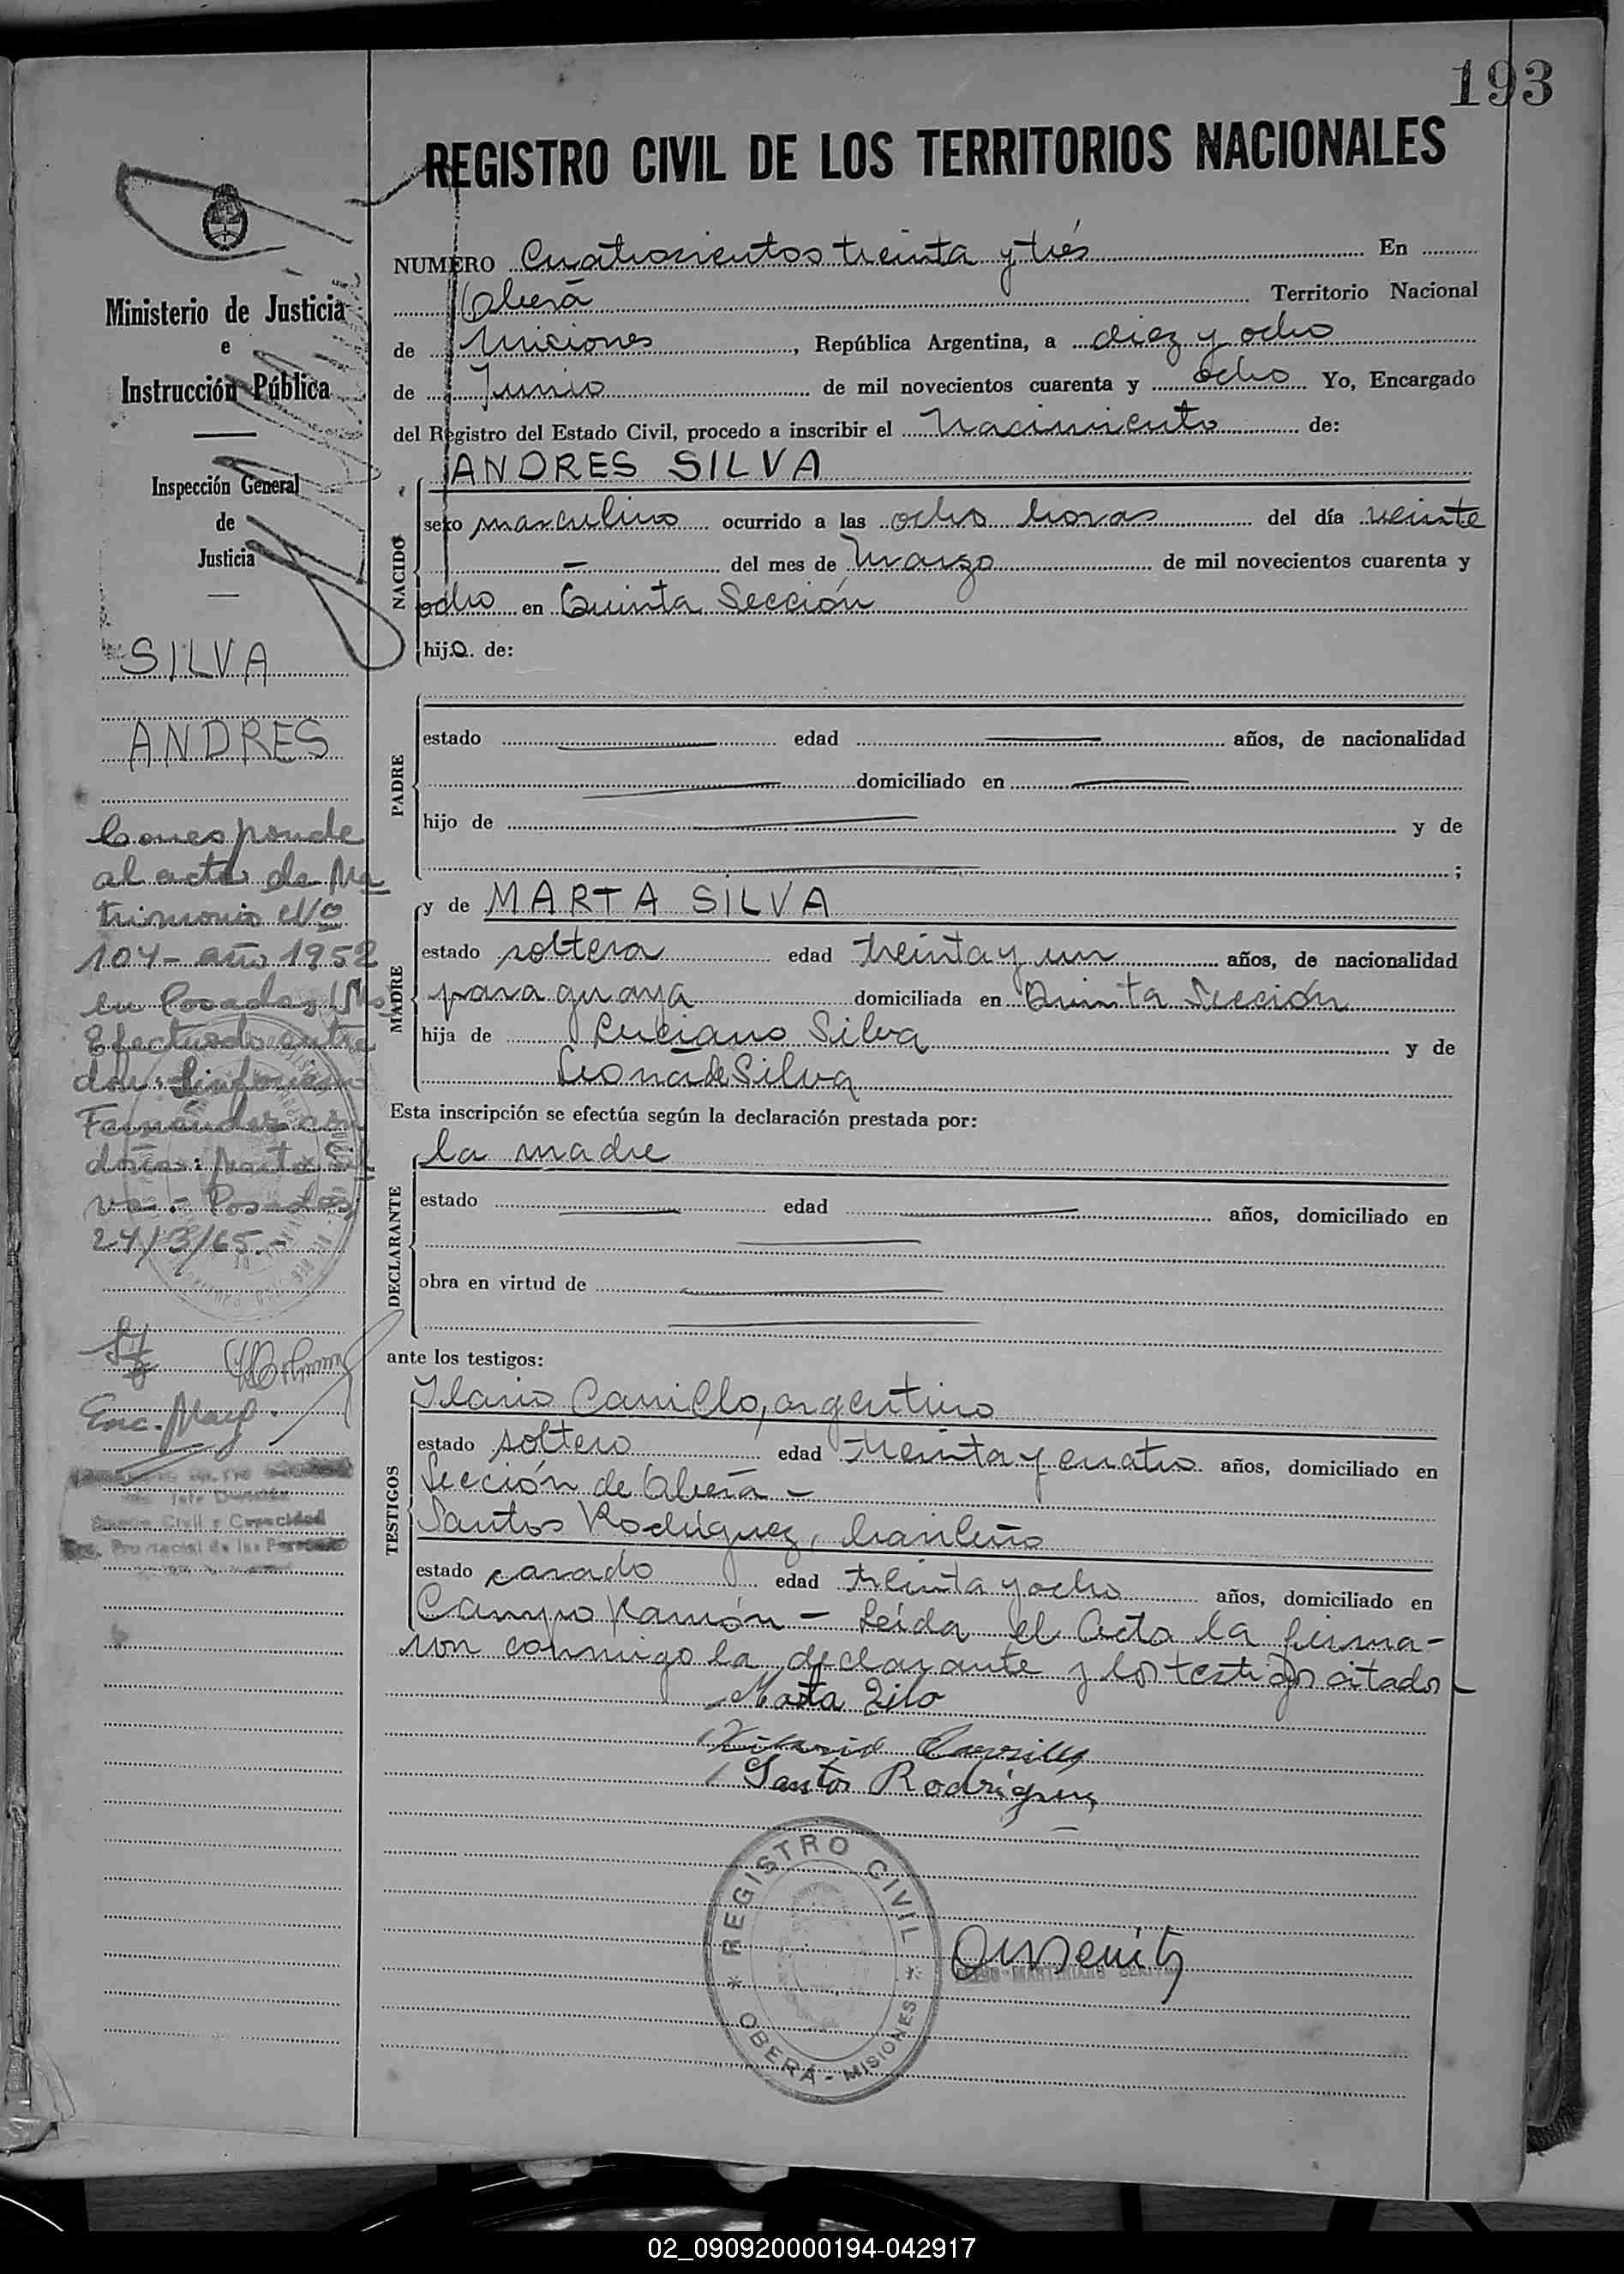 193
REGISTRO CIVIL DE LOS TERRITORIOS NACIONALES
Ministerio de Justicia
e
Instrucción Pública
Inspección General
de
Justicia
SILVA
ANDRES
Corresponde
al acta de Ma
trimonio Nº
104- año 1952
en Posadas (Ms
Efectuado entre
don: Sinforiano
Fernández con
doña: Marta Sil
va.- Posadas,
24/3/65.-
Enc. Mayo.
Jefe División
Civil y Capacidad
Provincial de las Personas
NUMERO Cuatrocientos treinta y trés En
Oberá Territorio Nacional
de Misiones, República Argentina, a diez y ocho
de Junio de mil novecientos cuarenta y ocho Yo, Encargado
del Registro del Estado Civil, procedo a inscribir el Nacimiento de:
NACIDO
ANDRES SILVA
sexo masculino ocurrido a las ocho horas del día veinte
— del mes de Marzo de mil novecientos cuarenta y
ocho en Quinta Sección
hijo. de:
PADRE
estado edad años, de nacionalidad
domiciliado en
hijo de y de
;
MADRE
y de MARTA SILVA
estado soltera edad treinta y un años, de nacionalidad
paraguaya domiciliada en Quinta Sección
hija de Luciano Silva y de
Leona de Silva
Esta inscripción se efectúa según la declaración prestada por:
DECLARANTE
la madre
estado edad años, domiciliado en
obra en virtud de
ante los testigos:
TESTIGOS
Ilario Carrillo, argentino
estado soltero edad treinta y cuatro años, domiciliado en
Sección de Oberá —
Santos Rodríguez, brasileño
estado casado edad treinta y ocho años, domiciliado en
Campo Ramón — Leída el Acta la firma-
ron conmigo la declarante y los testigos citados —
Marta Zilo
Carrillo
Santos Rodriguez
REGISTRO CIVIL
OBERÁ - MISIONES
02_090920000194-042917